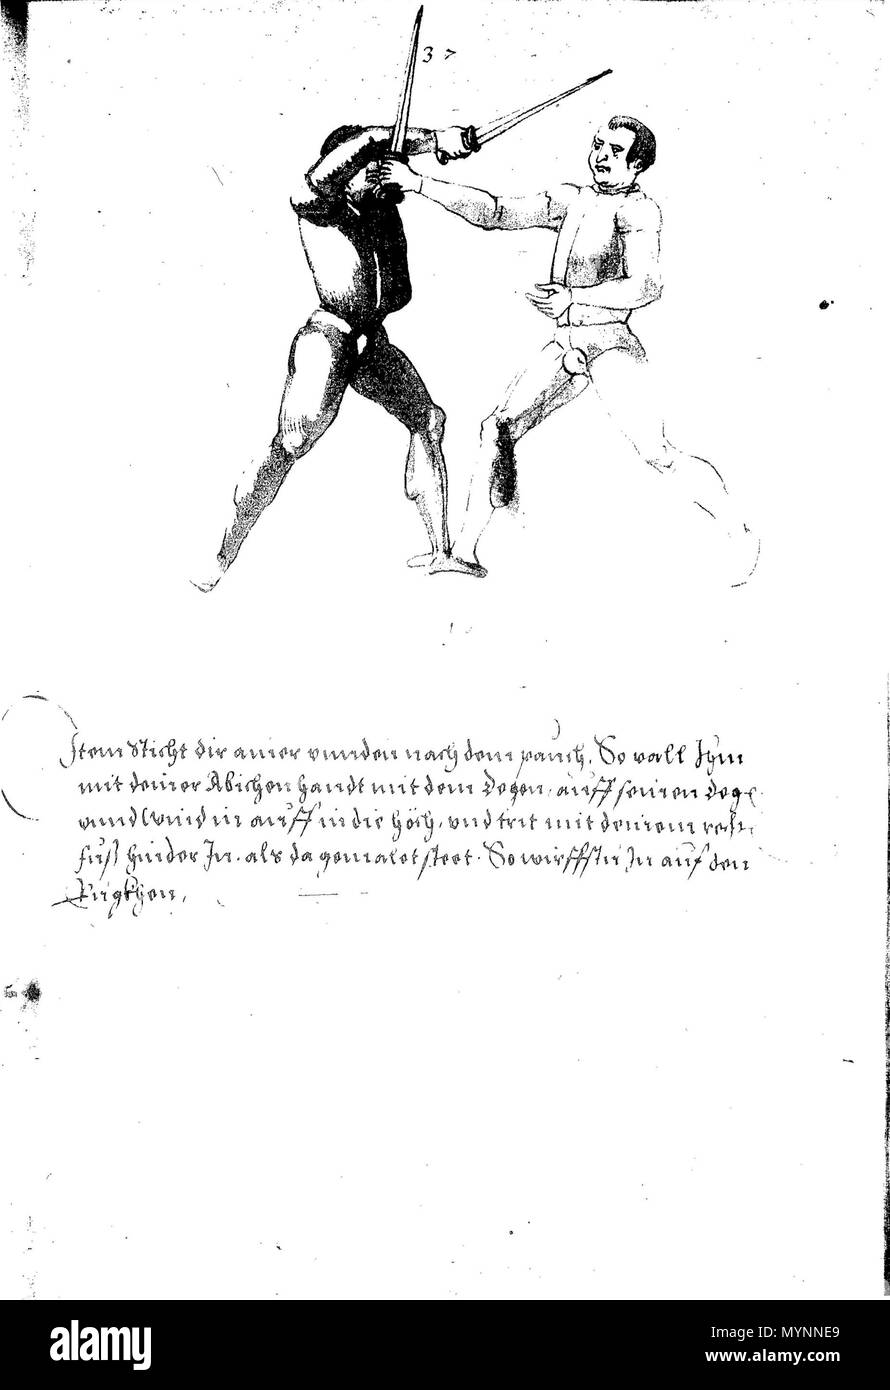 37
Item Sticht dir ainer vnnden nach dem pauch, So vall Ihm
mit deiner Abichen handt mit dem Degen, auff seinen Dege
vnnd wind in auff in die höch, vnd trit mit deinem recht
fuß hinder In, als da gemalet steet. So wirffstu In auf den
Rugkhen,
alamy
Image ID: MYNNE9
www.alamy.com